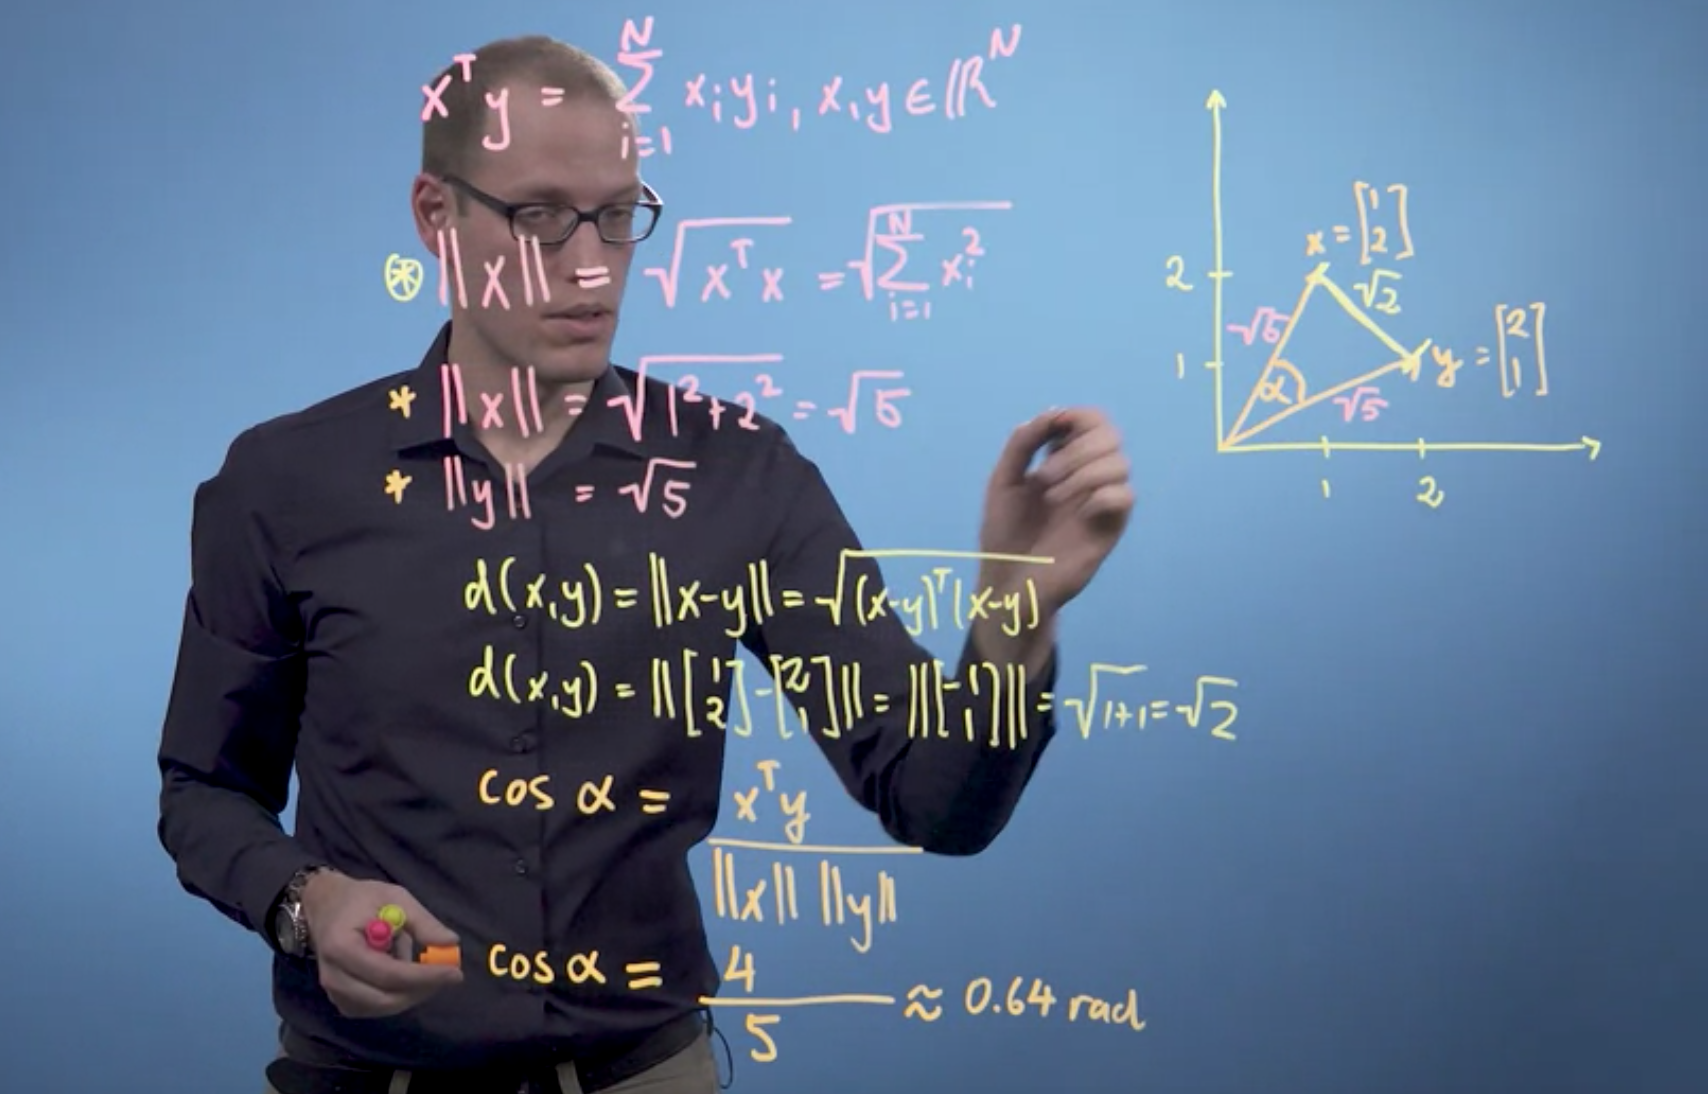 xᵀy = Σ_{i=1}^{N} xᵢyᵢ, x,y ∈ ℝᴺ
⊛ ||x|| = √(xᵀx) = √(Σ_{i=1}^{N} xᵢ²)
* ||x|| = √(1²+2²) = √5
* ||y|| = √5
d(x,y) = ||x-y|| = √((x-y)ᵀ(x-y))
d(x,y) = ||[1 2] - [2 1]|| = ||[-1 1]|| = √(1+1) = √2
cos α = xᵀy / (||x|| ||y||)
cos α = 4/5 ≈ 0.64 rad
x = [1 2]
2
√5
√2
y = [2 1]
1
α
√5
1 2